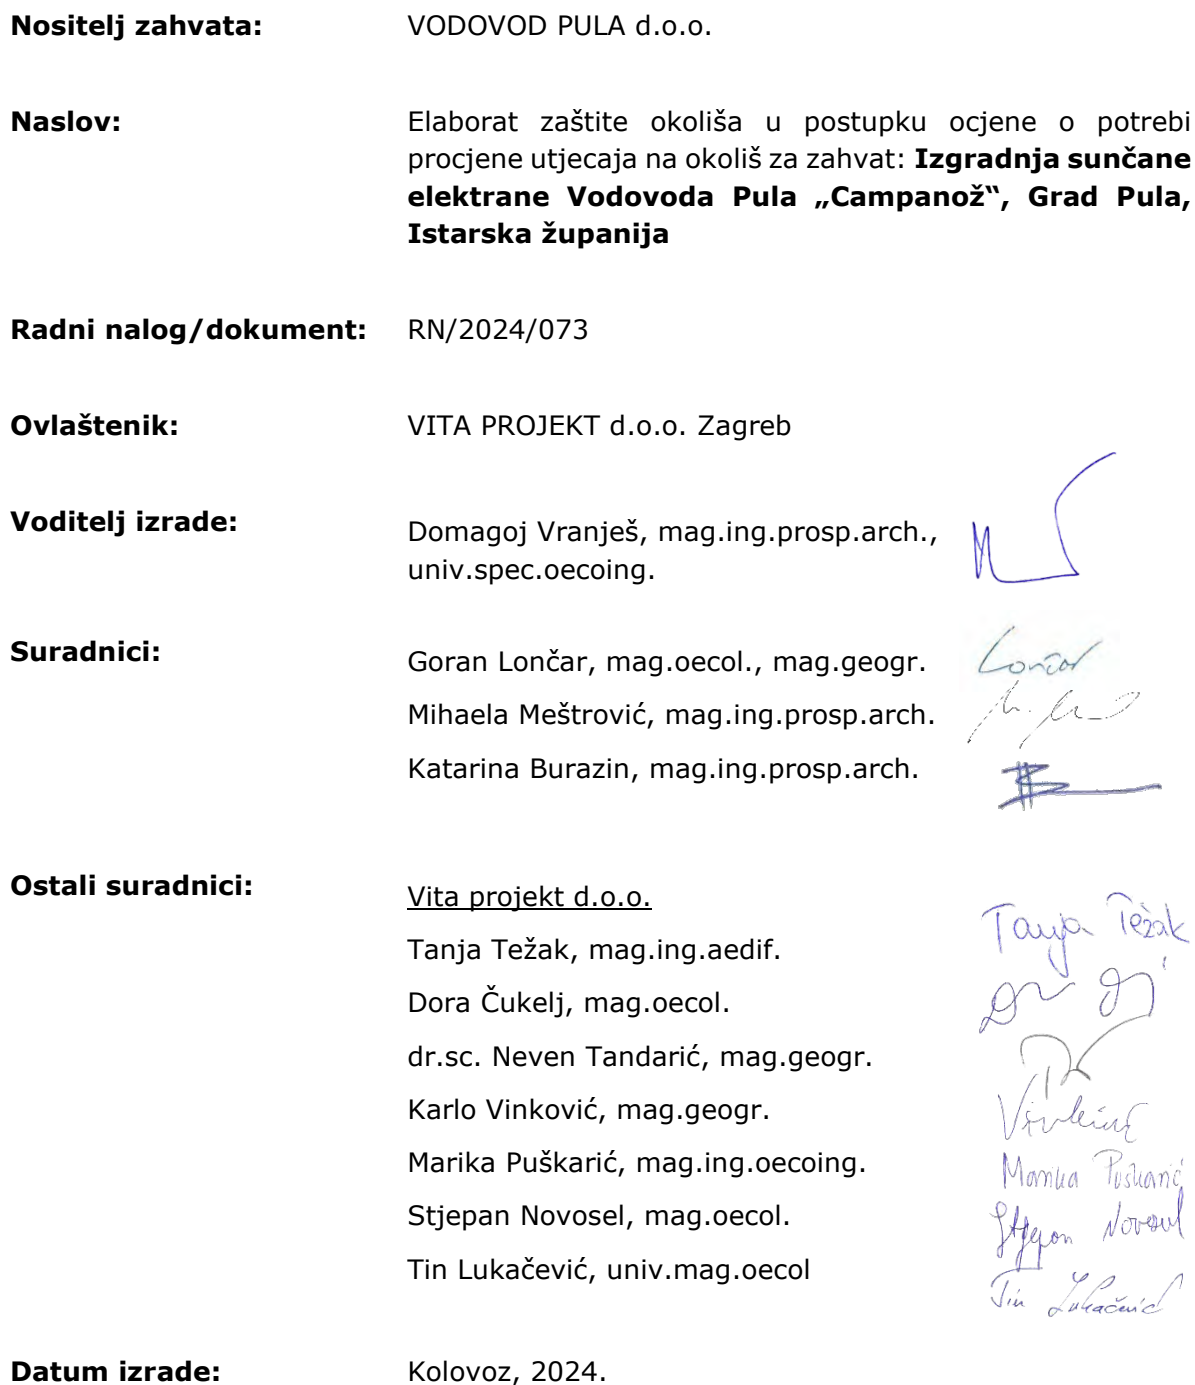 Nositelj zahvata: VODOVOD PULA d.o.o.
Naslov: Elaborat zaštite okoliša u postupku ocjene o potrebi
procjene utjecaja na okoliš za zahvat: Izgradnja sunčane
elektrane Vodovoda Pula „Campanož“, Grad Pula,
Istarska županija
Radni nalog/dokument: RN/2024/073
Ovlaštenik: VITA PROJEKT d.o.o. Zagreb
Voditelj izrade: Domagoj Vranješ, mag.ing.prosp.arch.,
univ.spec.oecoing.
Suradnici: Goran Lončar, mag.oecol., mag.geogr. Lončar
Mihaela Meštrović, mag.ing.prosp.arch.
Katarina Burazin, mag.ing.prosp.arch.
Ostali suradnici: Vita projekt d.o.o.
Tanja Težak, mag.ing.aedif. Tanja Težak
Dora Čukelj, mag.oecol.
dr.sc. Neven Tandarić, mag.geogr.
Karlo Vinković, mag.geogr. Vinković
Marika Puškarić, mag.ing.oecoing. Marika Puškarić
Stjepan Novosel, mag.oecol. Stjepan Novosel
Tin Lukačević, univ.mag.oecol Tin Lukačević
Datum izrade: Kolovoz, 2024.